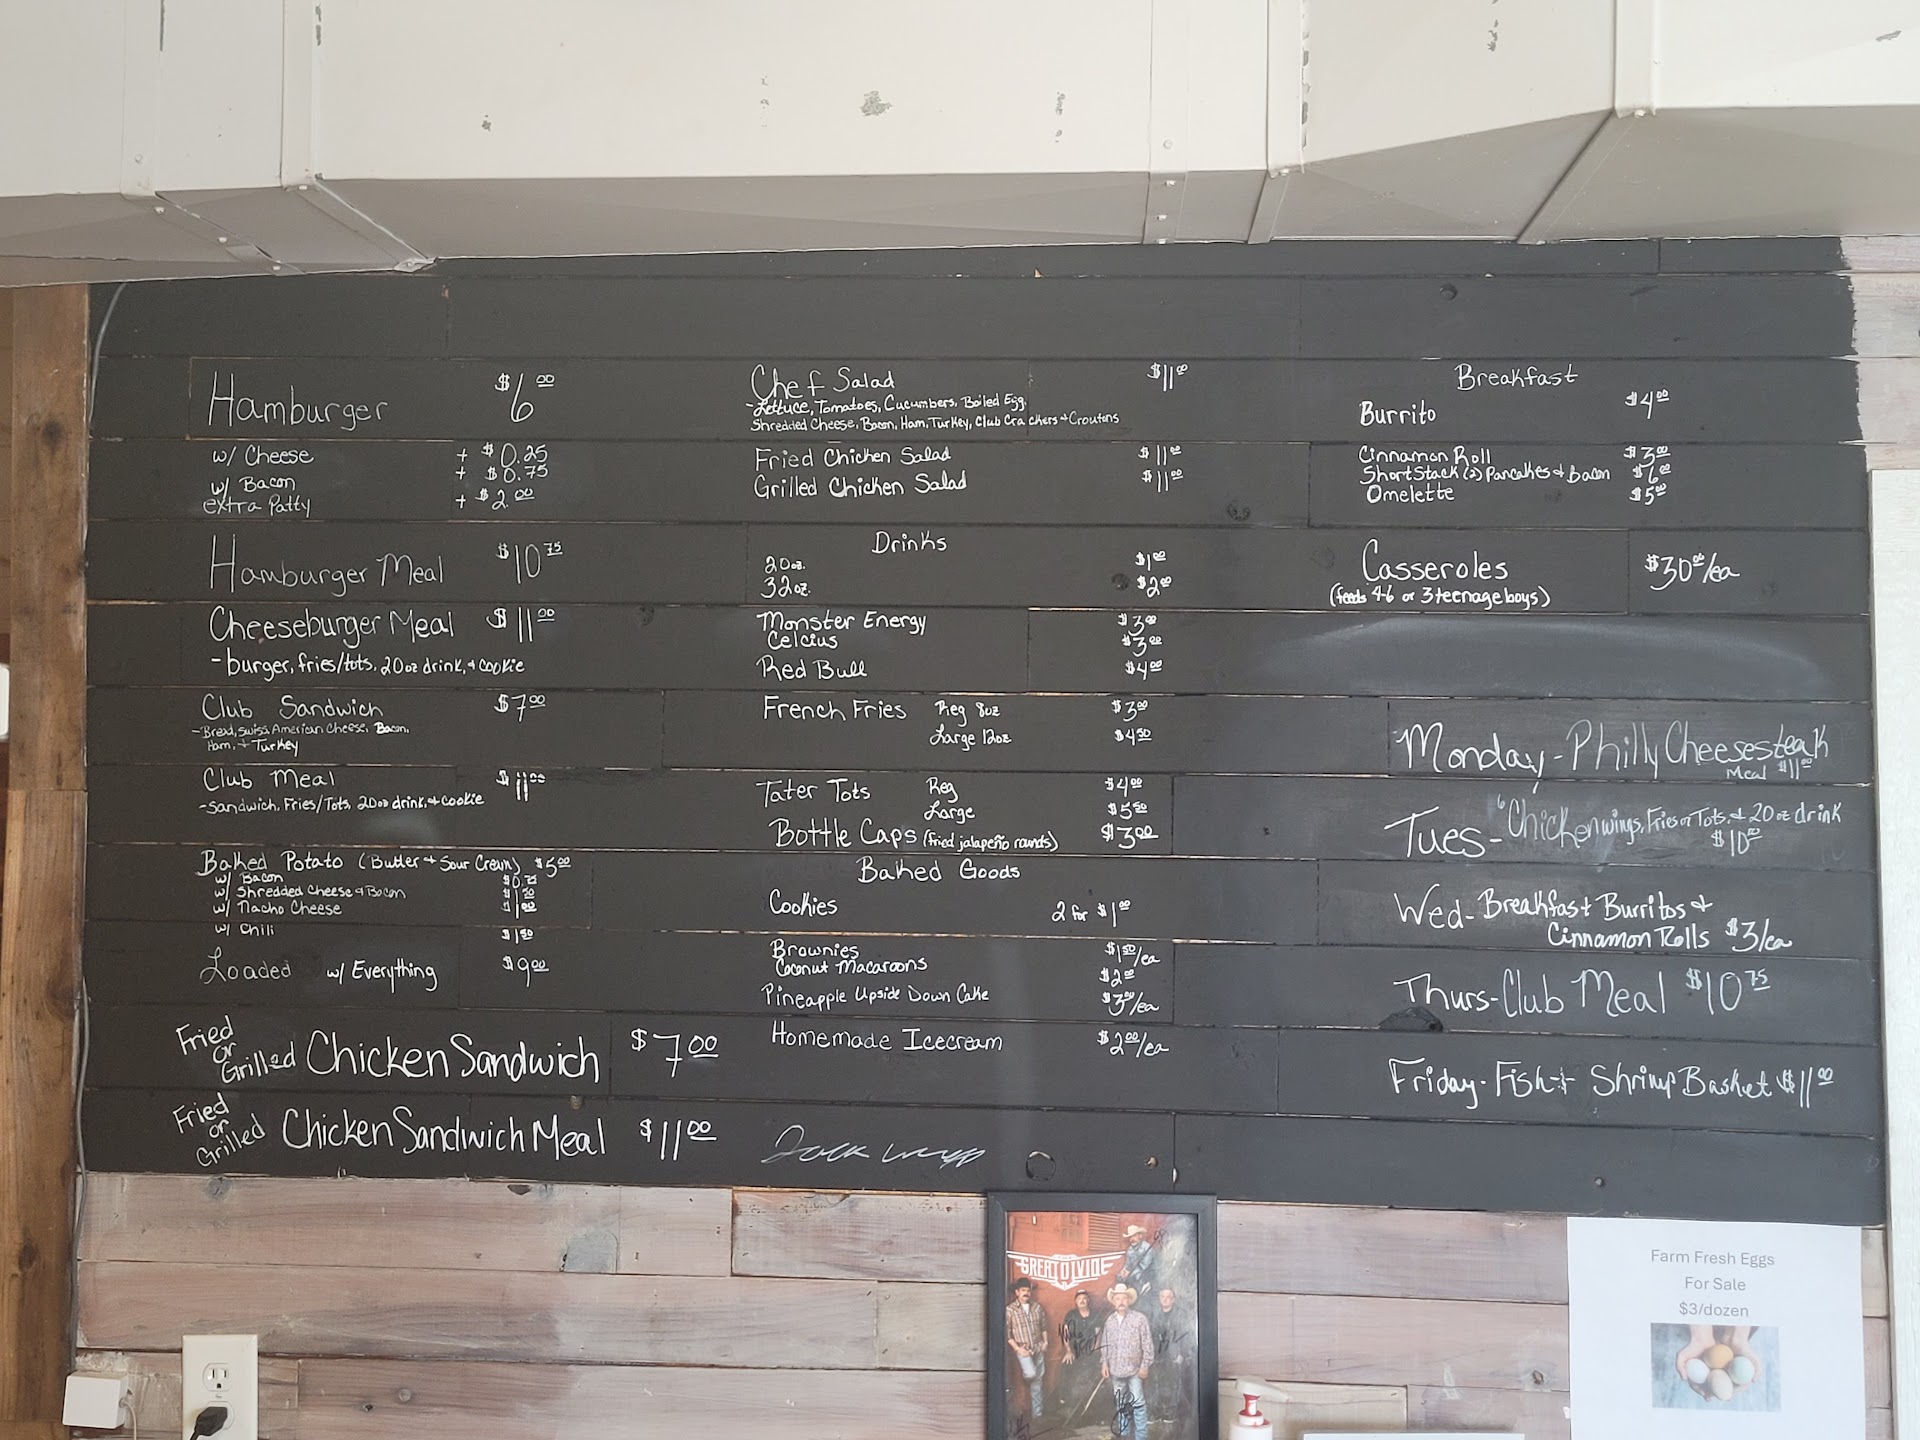 Hamburger $6.00
w/ Cheese + $0.25
w/ Bacon + $0.75
extra Patty + $2.00
Hamburger Meal $10.75
Cheeseburger Meal $11.00
-burger, fries/tots, 20oz drink, + cookie
Club Sandwich $7.00
-Bread, Swiss, American Cheese, Bacon,
Ham, + Turkey
Club Meal $11.00
-Sandwich, Fries/Tots, 20oz drink, + cookie
Baked Potato (Butter + Sour Cream) $5.00
w/ Bacon $0.75
w/ Shredded Cheese + Bacon $1.50
w/ Nacho Cheese $1.00
w/ Chili $1.50
Loaded w/ Everything $9.00
Fried or Grilled Chicken Sandwich $7.00
Fried or Grilled Chicken Sandwich Meal $11.00
Chef Salad $11.00
-Lettuce, Tomatoes, Cucumbers, Boiled Egg,
Shredded Cheese, Bacon, Ham, Turkey, Club Crackers + Croutons
Fried Chicken Salad $11.00
Grilled Chicken Salad $11.00
Drinks
20oz. $1.00
32oz. $2.00
Monster Energy $3.00
Celcius $3.00
Red Bull $4.00
French Fries Reg 8oz $3.00
Large 12oz $4.50
Tater Tots Reg $4.00
Large $5.50
Bottle Caps (fried jalapeño rounds) $3.00
Baked Goods
Cookies 2 for $1.00
Brownies $1.50/ea
Coconut Macaroons $2.00
Pineapple Upside Down Cake $3.00/ea
Homemade Icecream $2.00/ea
Breakfast
Burrito $4.00
Cinnamon Roll $3.00
Short Stack (2) Pancakes + Bacon $6.00
Omelette $5.00
Casseroles $30.00/ea
(feeds 4-6 or 3 teenage boys)
Monday - Philly Cheesesteak
Meal $11.00
Tues - 6 Chicken wings, Fries or Tots, + 20oz drink
$10.00
Wed - Breakfast Burritos +
Cinnamon Rolls $3/ea
Thurs - Club Meal $10.75
Friday - Fish + Shrimp Basket $11.00
GREAT DIVIDE
Farm Fresh Eggs
For Sale
$3/dozen